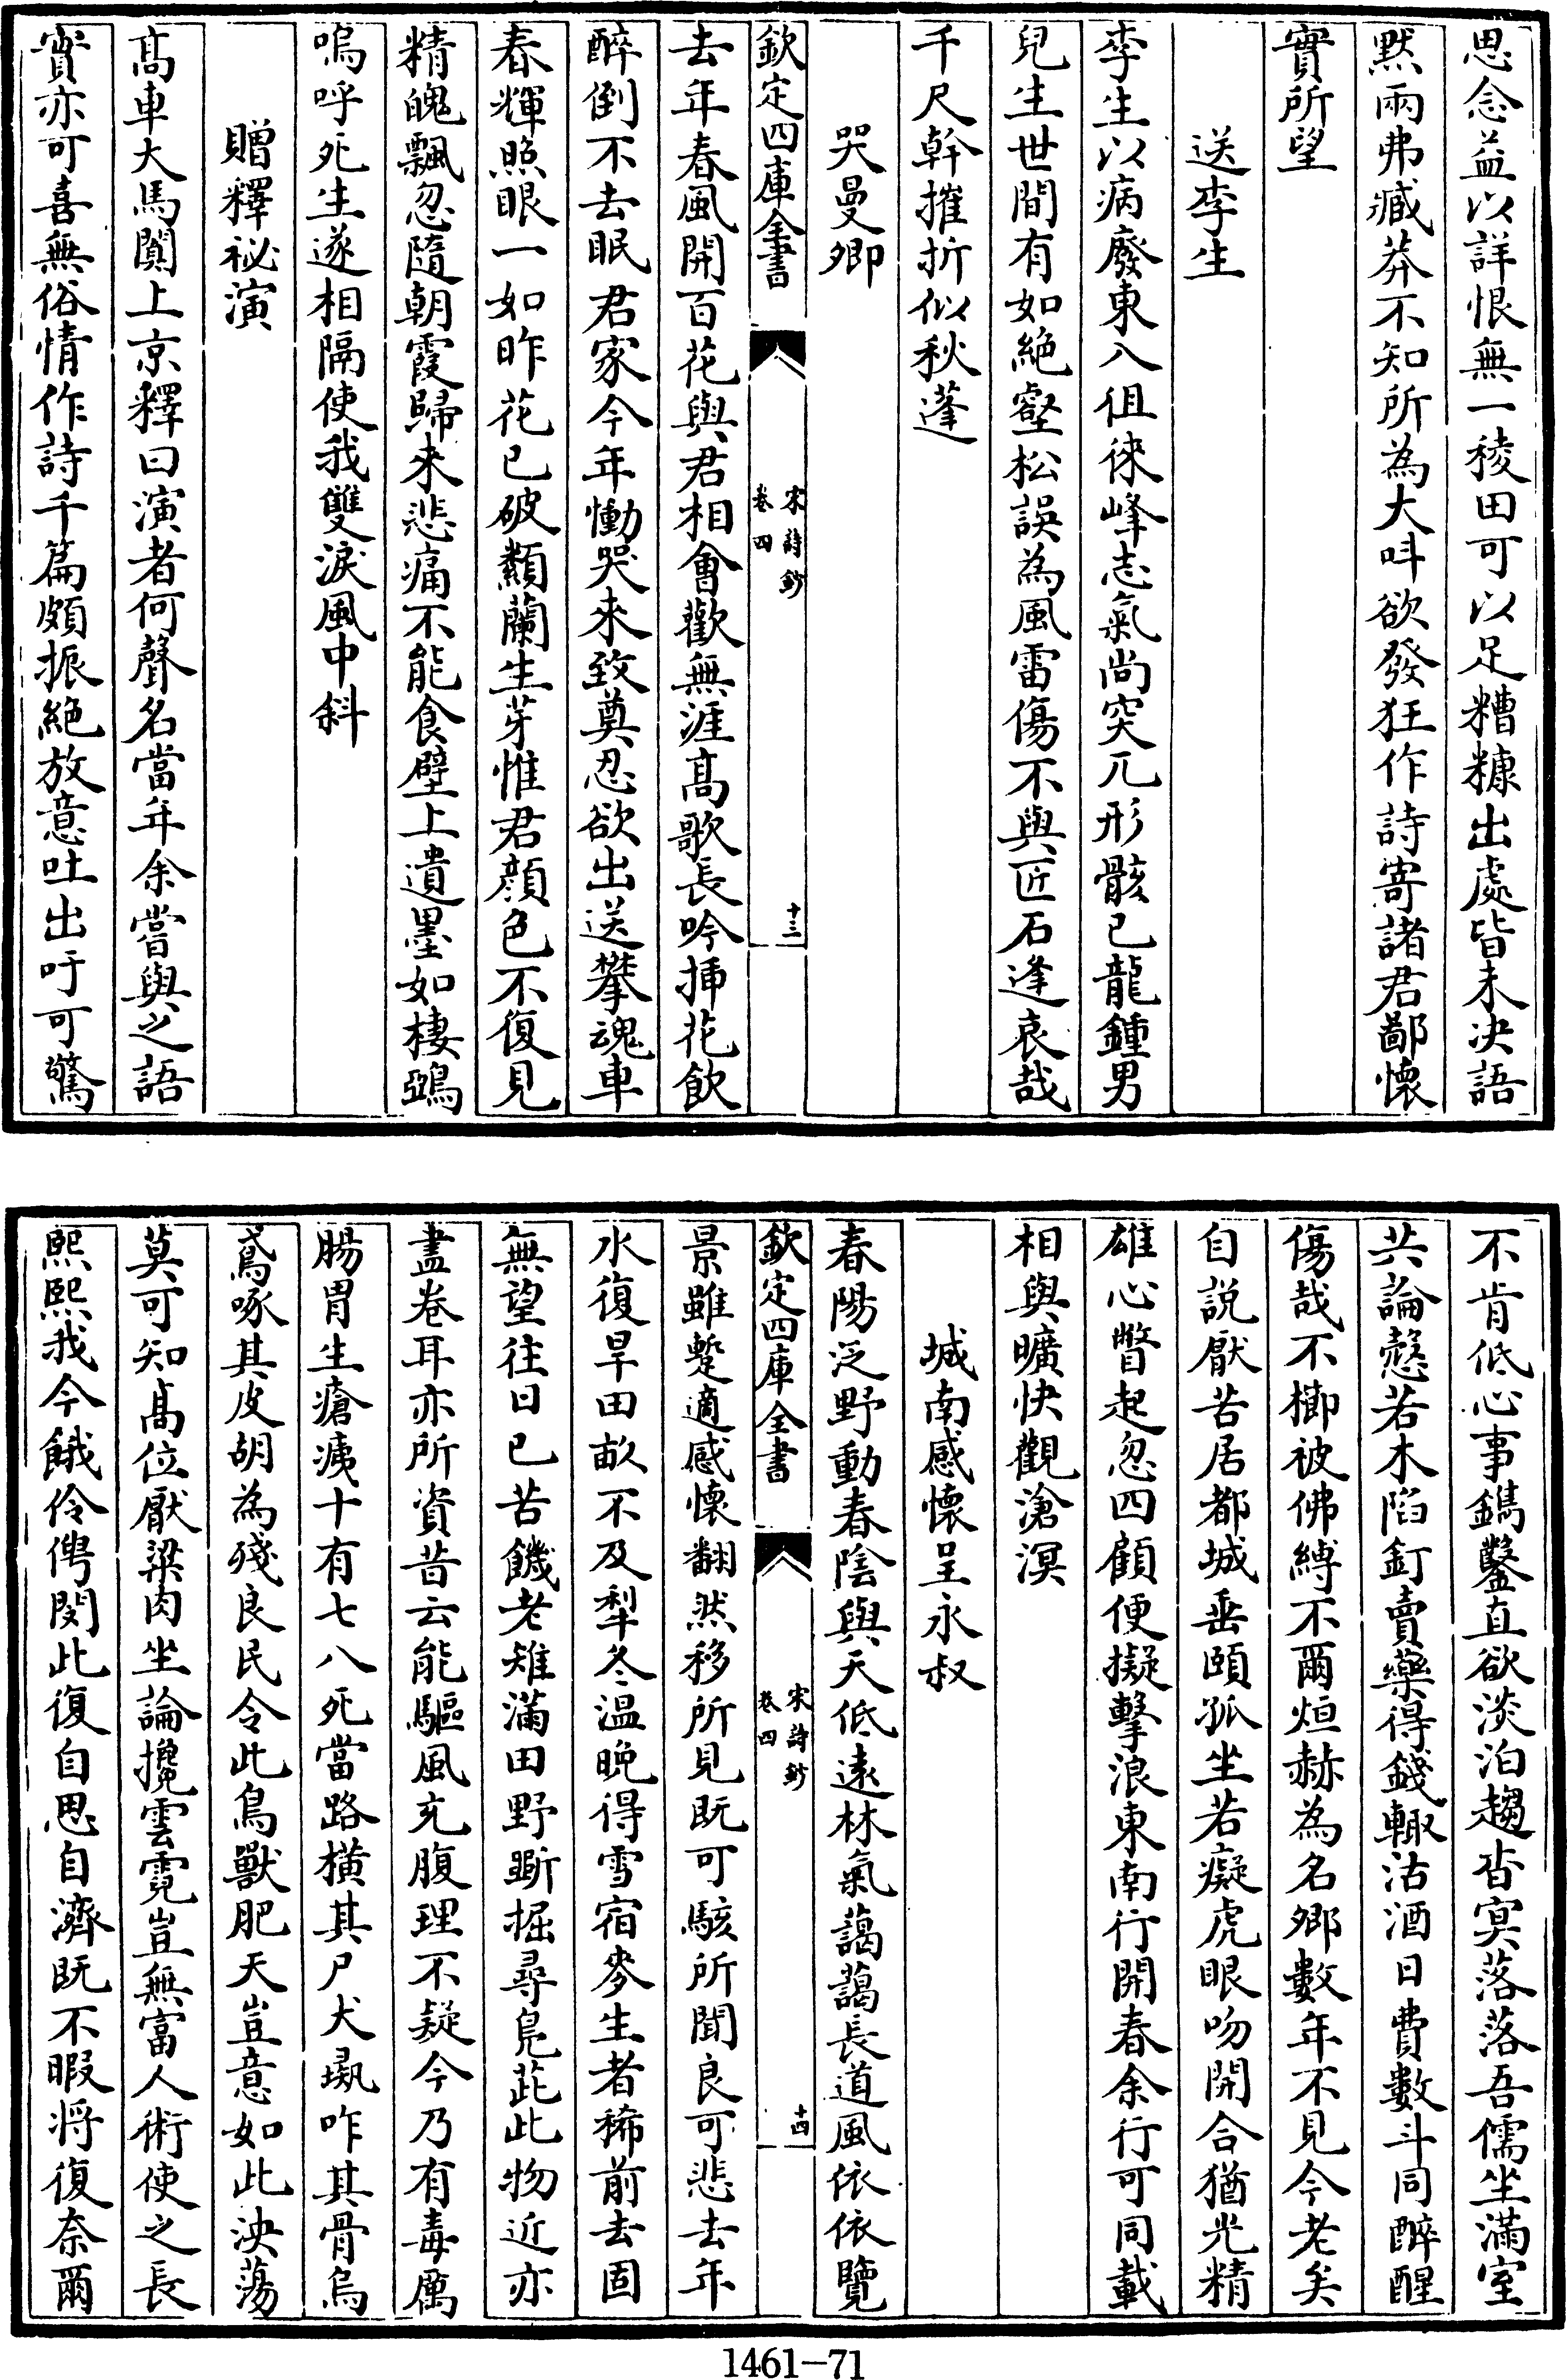 思念益以詳恨無一稜田可以足糟糠出處皆未决語
黙兩弗臧莽不知所為大呌欲發狂作詩寄諸君鄙懷
實所望
送李生
李生以病廢東入徂徠峰志氣尚突兀形骸已龍鍾男
兒生世間有如絶壑松誤為風雷傷不與匠石逢哀哉
千尺幹摧折似秋蓬
哭曼卿
欽定四庫全書
宋詩鈔
卷四
十三
去年春風開百花與君相會歡無涯髙歌長吟揷花飲
醉倒不去眠君家今年慟哭來致奠忍欲出送攀魂車
春輝照眼一如昨花已破蘱蘭生芽惟君顔色不復見
精魄飄忽隨朝霞歸來悲痛不能食壁上遺墨如棲鵶
嗚呼死生遂相隔使我雙淚風中斜
贈釋祕演
髙車大馬闐上京釋曰演者何聲名當年余嘗與之語
實亦可喜無俗情作詩千篇頗振絶放意吐出吁可驚
不肯低心事鐫鑿直欲淡泊趨杳冥落落吾儒坐滿室
共論慤若木陷釘賣藥得錢輙沽酒日費數斗同醉醒
傷哉不櫛被佛縛不爾烜赫為名卿數年不見今老矣
自説厭苦居都城垂頤孤坐若癡虎眼吻開合猶光精
雄心瞥起忽四顧便擬擊浪東南行開春余行可同載
相與曠快觀滄溟
城南感懷呈永叔
春陽泛野動春陰與天低逺林氣藹藹長道風依依覽
欽定四庫全書
宋詩鈔
卷四
十四
景雖蹔適感懷翻然移所見既可駭所聞良可悲去年
水復旱田畝不及犁冬温晩得雪宿麥生者稀前去固
無望徃日已苦饑老稚滿田野斲掘尋鳬茈此物近亦
盡卷耳亦所資昔云能驅風充腹理不疑今乃有毒厲
腸胃生瘡痍十有七八死當路横其尸犬彘咋其骨烏
鳶啄其皮胡為殘良民令此鳥獸肥天豈意如此泱蕩
莫可知髙位厭粱肉坐論攙雲霓豈無富人術使之長
熙熙我今餓伶俜閔此復自思自濟既不暇將復奈爾
1461-71